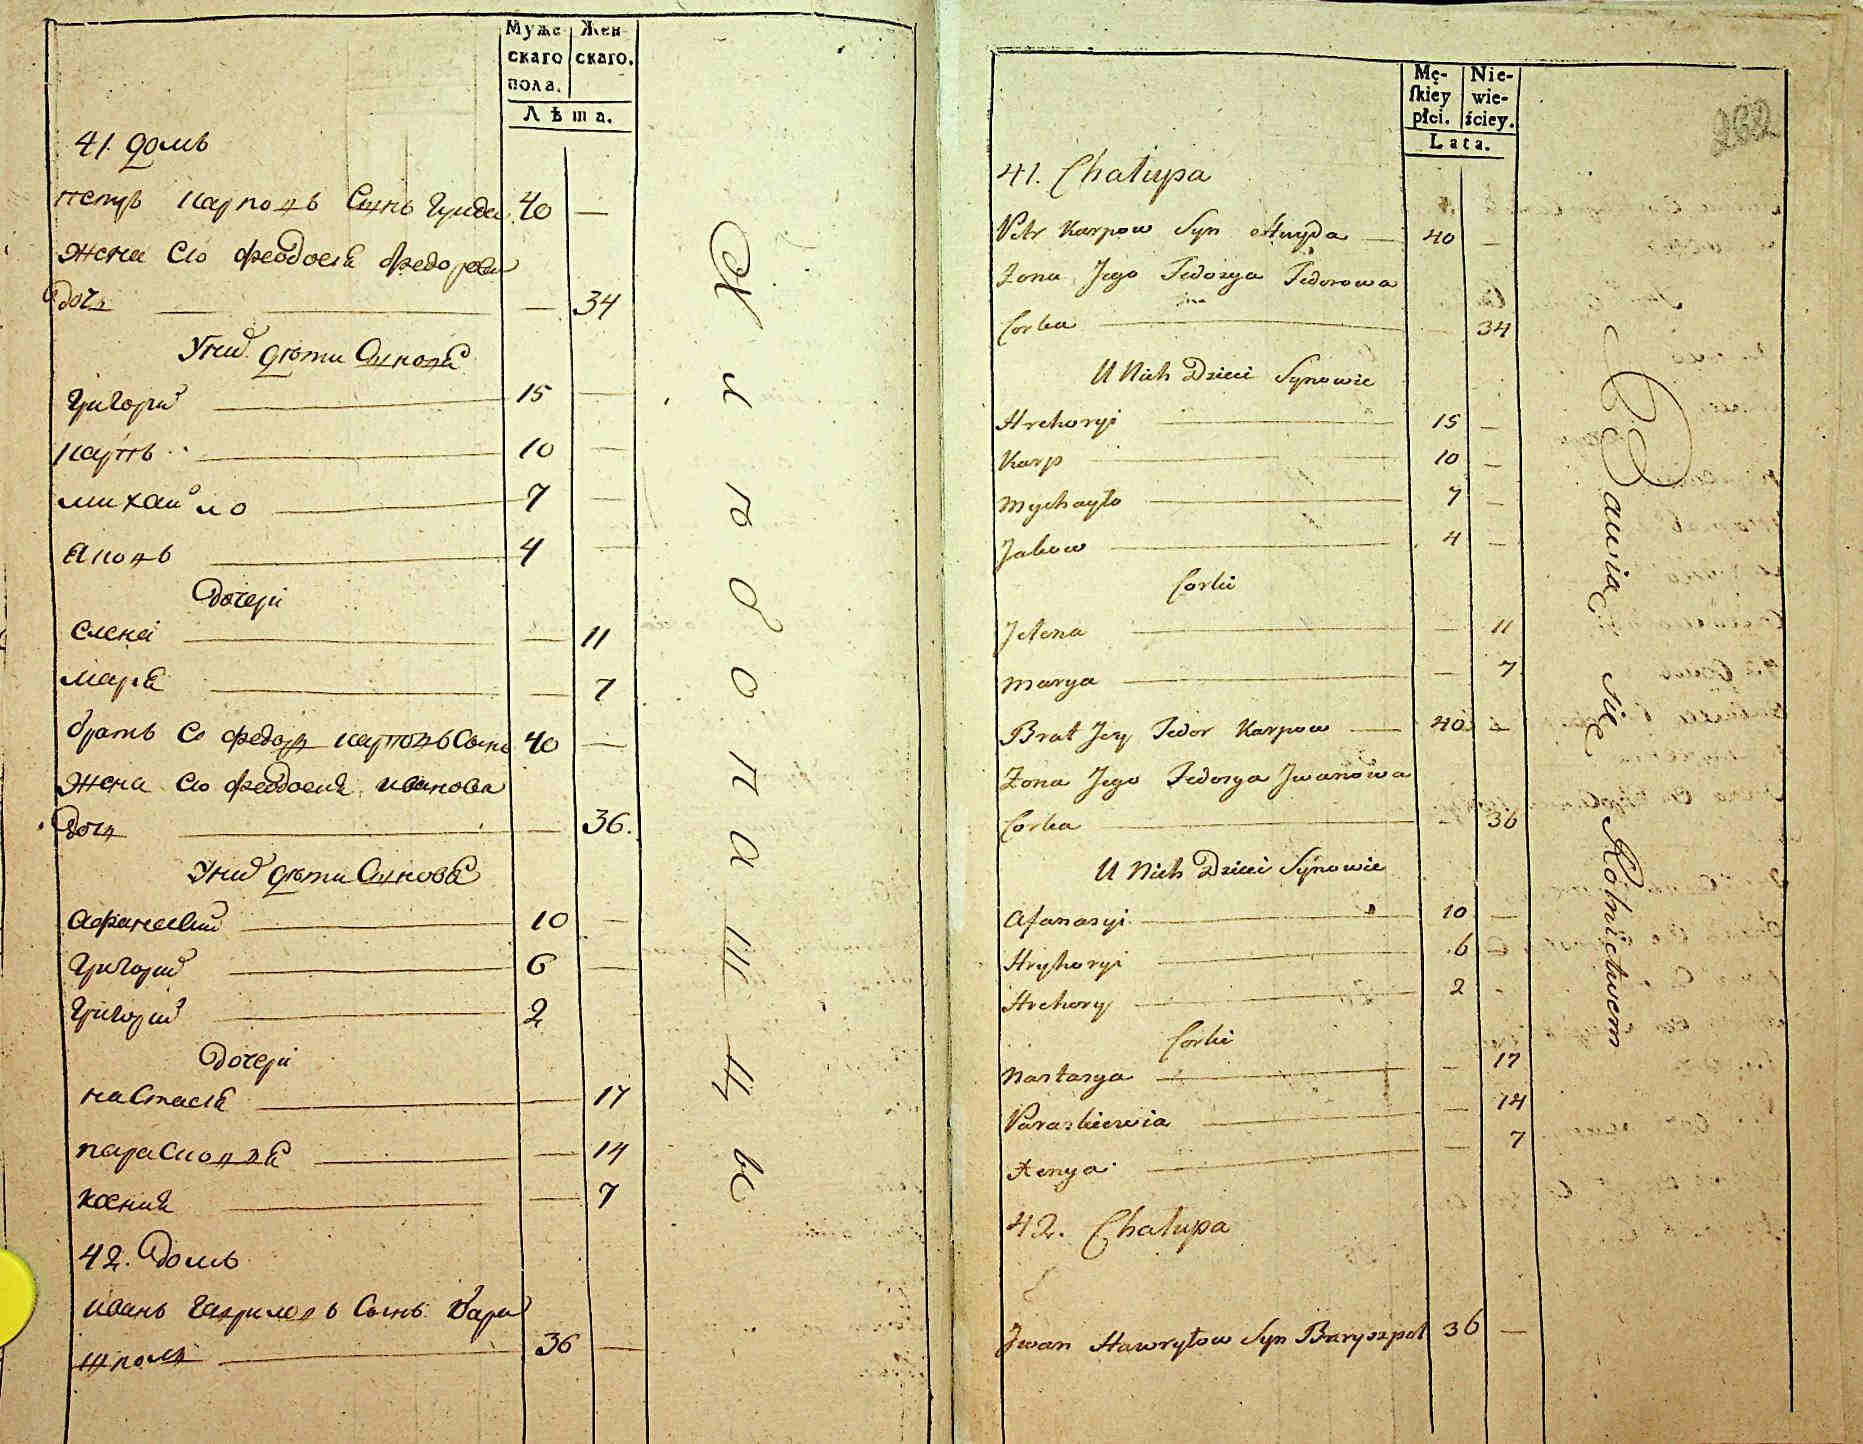 Муже
скаго
пола.
Жен
скаго.
Лѣта.
41 домъ
петръ карповъ Сынъ Грида 40 —
жена его феодосія федорова
дочь — 34
У них дѣти Сыновя
григорій 15 —
карпъ 10 —
михайло 7 —
яковъ 4 —
дочери
елена — 11
марія — 7
братъ ео федоръ карповъ Сынъ 40 —
жена его феодосия иванова
дочь — 36.
У них дѣти Сынове
афанасий 10 —
григорий 6 —
григорий 2
дочери
настасія — 17
парасковья — 14
ксения — 7
42. домъ
иванъ гавриловъ Сынъ бари
шполь 36 —
Хлѣбопашцы
Mę-
skiey
płci.
Nie-
wie-
ściey.
Lata.
262
41. Chałupa
Petr Karpow Syn Hryda — 40 —
Żona Jego Fedosya Fedorowa
Corka — 34
U Nich Dzieci Synowie
Hrehoryi 15 —
Karp 10 —
Mychayło 7 —
Jakow 4 —
Corki
Jelena — 11
Marya — 7
Brat Jey Fedor Karpow — 40 —
Żona Jego Fedosya Jwanowa
Corka — 36
U Nich Dzieci Synowie
Afanasyi 10 —
Hryhoryi 6 —
Hrehory 2 -
Corki
Nastasya — 17
Paraskiewia — 14
Xenya — 7
42. Chałupa
Jwan Hawryłow Syn Baryszpol 36 —
Bawią się Rolnictwem